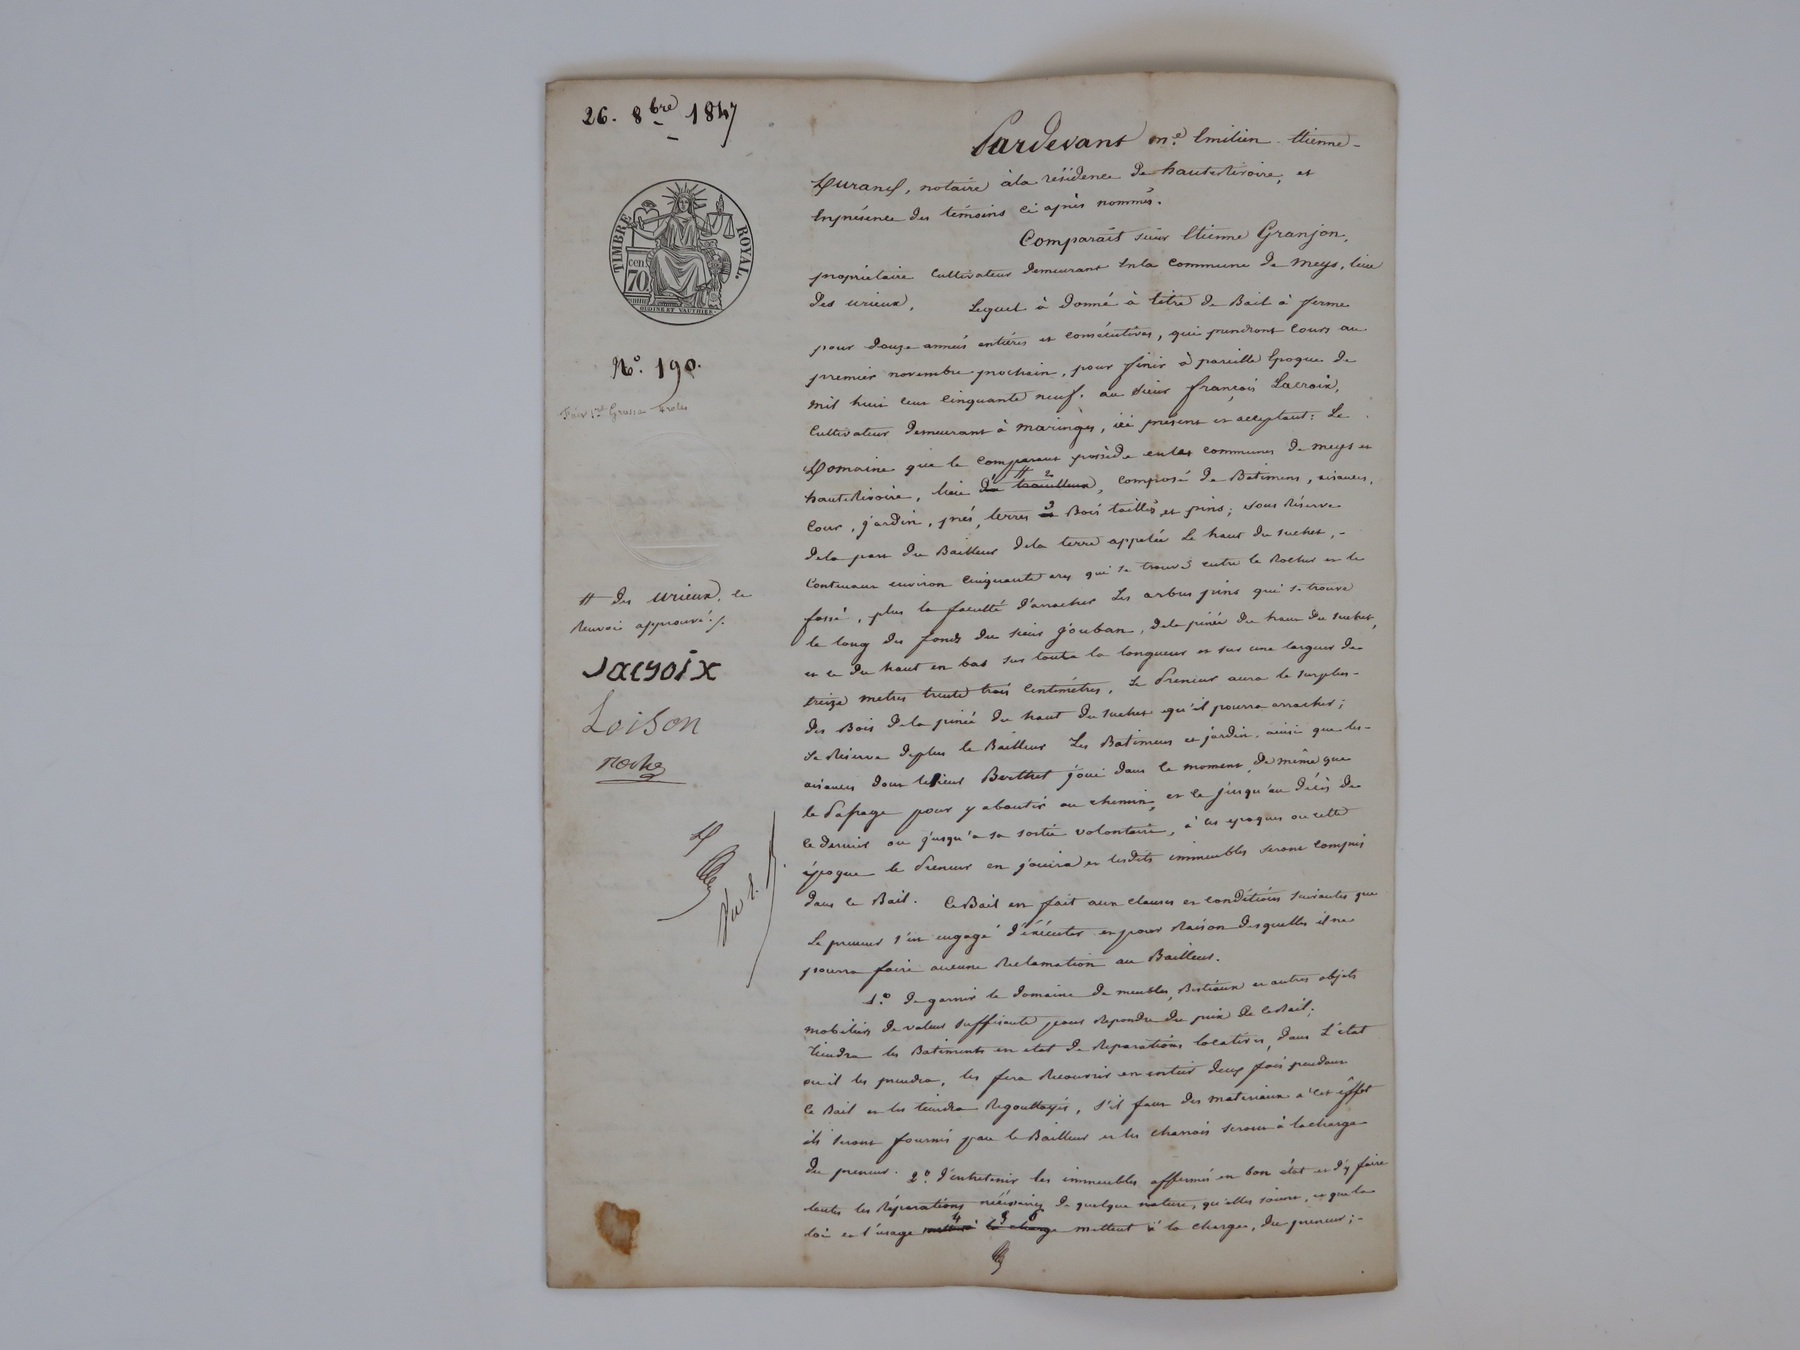 26. 8bre 1847
TIMBRE ROYAL.
cen 70.
N°. 190.
# des urieux, le
Renvoi approuvé ./.
Lacroix
Loison
roche
Pardevant me. Emilien Etienne
Durand, notaire àla résidence de hauterivoire, et
Enprésence des témoins ci après nommés.
Comparait sieur Etienne Granjon,
propriétaire cultivateur demeurant enla commune de meys, lieu
des urieux, Lequel à donné à titre de Bail à ferme
pour douze années entières et consécutives, qui prendront cours au
premier novembre prochain, pour finir à pareille Epoque de
mil huit cent cinquante neuf. au sieur françois Lacroix,
cultivateur demeurant à maringes, ici présent et acceptant: Le
Domaine que le comparant possède enles communes de meys et
hauterivoire, lieu # composé de Batimens, aisances,
cour, jardin, prés, terres Bois taillis et pins; sous Réserve
dela part du Bailleur dela terre appelée Le haut du suchet,
contenant environ cinquante ares qui se trouve entre le Rocher et le
fossé, plus la faculté d'arracher Les arbres pins qui se trouve
le long des fonds du sieur jouban, dela pinée du haut du suchet,
et ce du haut en bas sur toute la longueur et sur une largeur de
treize metres trente trois centimètres. Le Preneur aura le surplus
des Bois dela pinée du haut du suchet qu'il pourra arracher;
Se Réserve deplus le Bailleur Les Batimens et jardin, ainsi que les
aisances dont le sieur Berthet joui dans le moment, de même que
le Passage pour y aboutir au chemin, et ce jusqu'au décès de
ce dernier ou jusqu'a sa sortie volontaire, à ces epoques ou cette
époque le Preneur en jouira et lesdits immeubles seront compris
dans ce Bail. Ce Bail est fait aux clauses et conditions suivantes que
Le preneur s'est engagé d'éxécuter et pour Raison desquelles il ne
pourra faire aucune Réclamation au Bailleur.
1.° de garnir le domaine de meubles, Bestiaux et autres objets
mobiliers de valeur suffisante pour Repondre du prix de ce Bail;
tiendra les Batiments en etat de Reparations locatives, dans L'état
ou il les prendra, les fera Recouvrir en entier deux fois pendant
ce Bail et les tiendra Regouttoyés, s'il faut des materiaux à cet effet
ils seront fournis par le Bailleur et les charrois seront à lacharge
du preneur. 2.° d'entretenir les immeubles affermés en bon état et d'y faire
toutes les Réparations nécessaires de quelque nature, qu'elles soient, et que la
loi et l'usage mettent à la charge, du preneur;